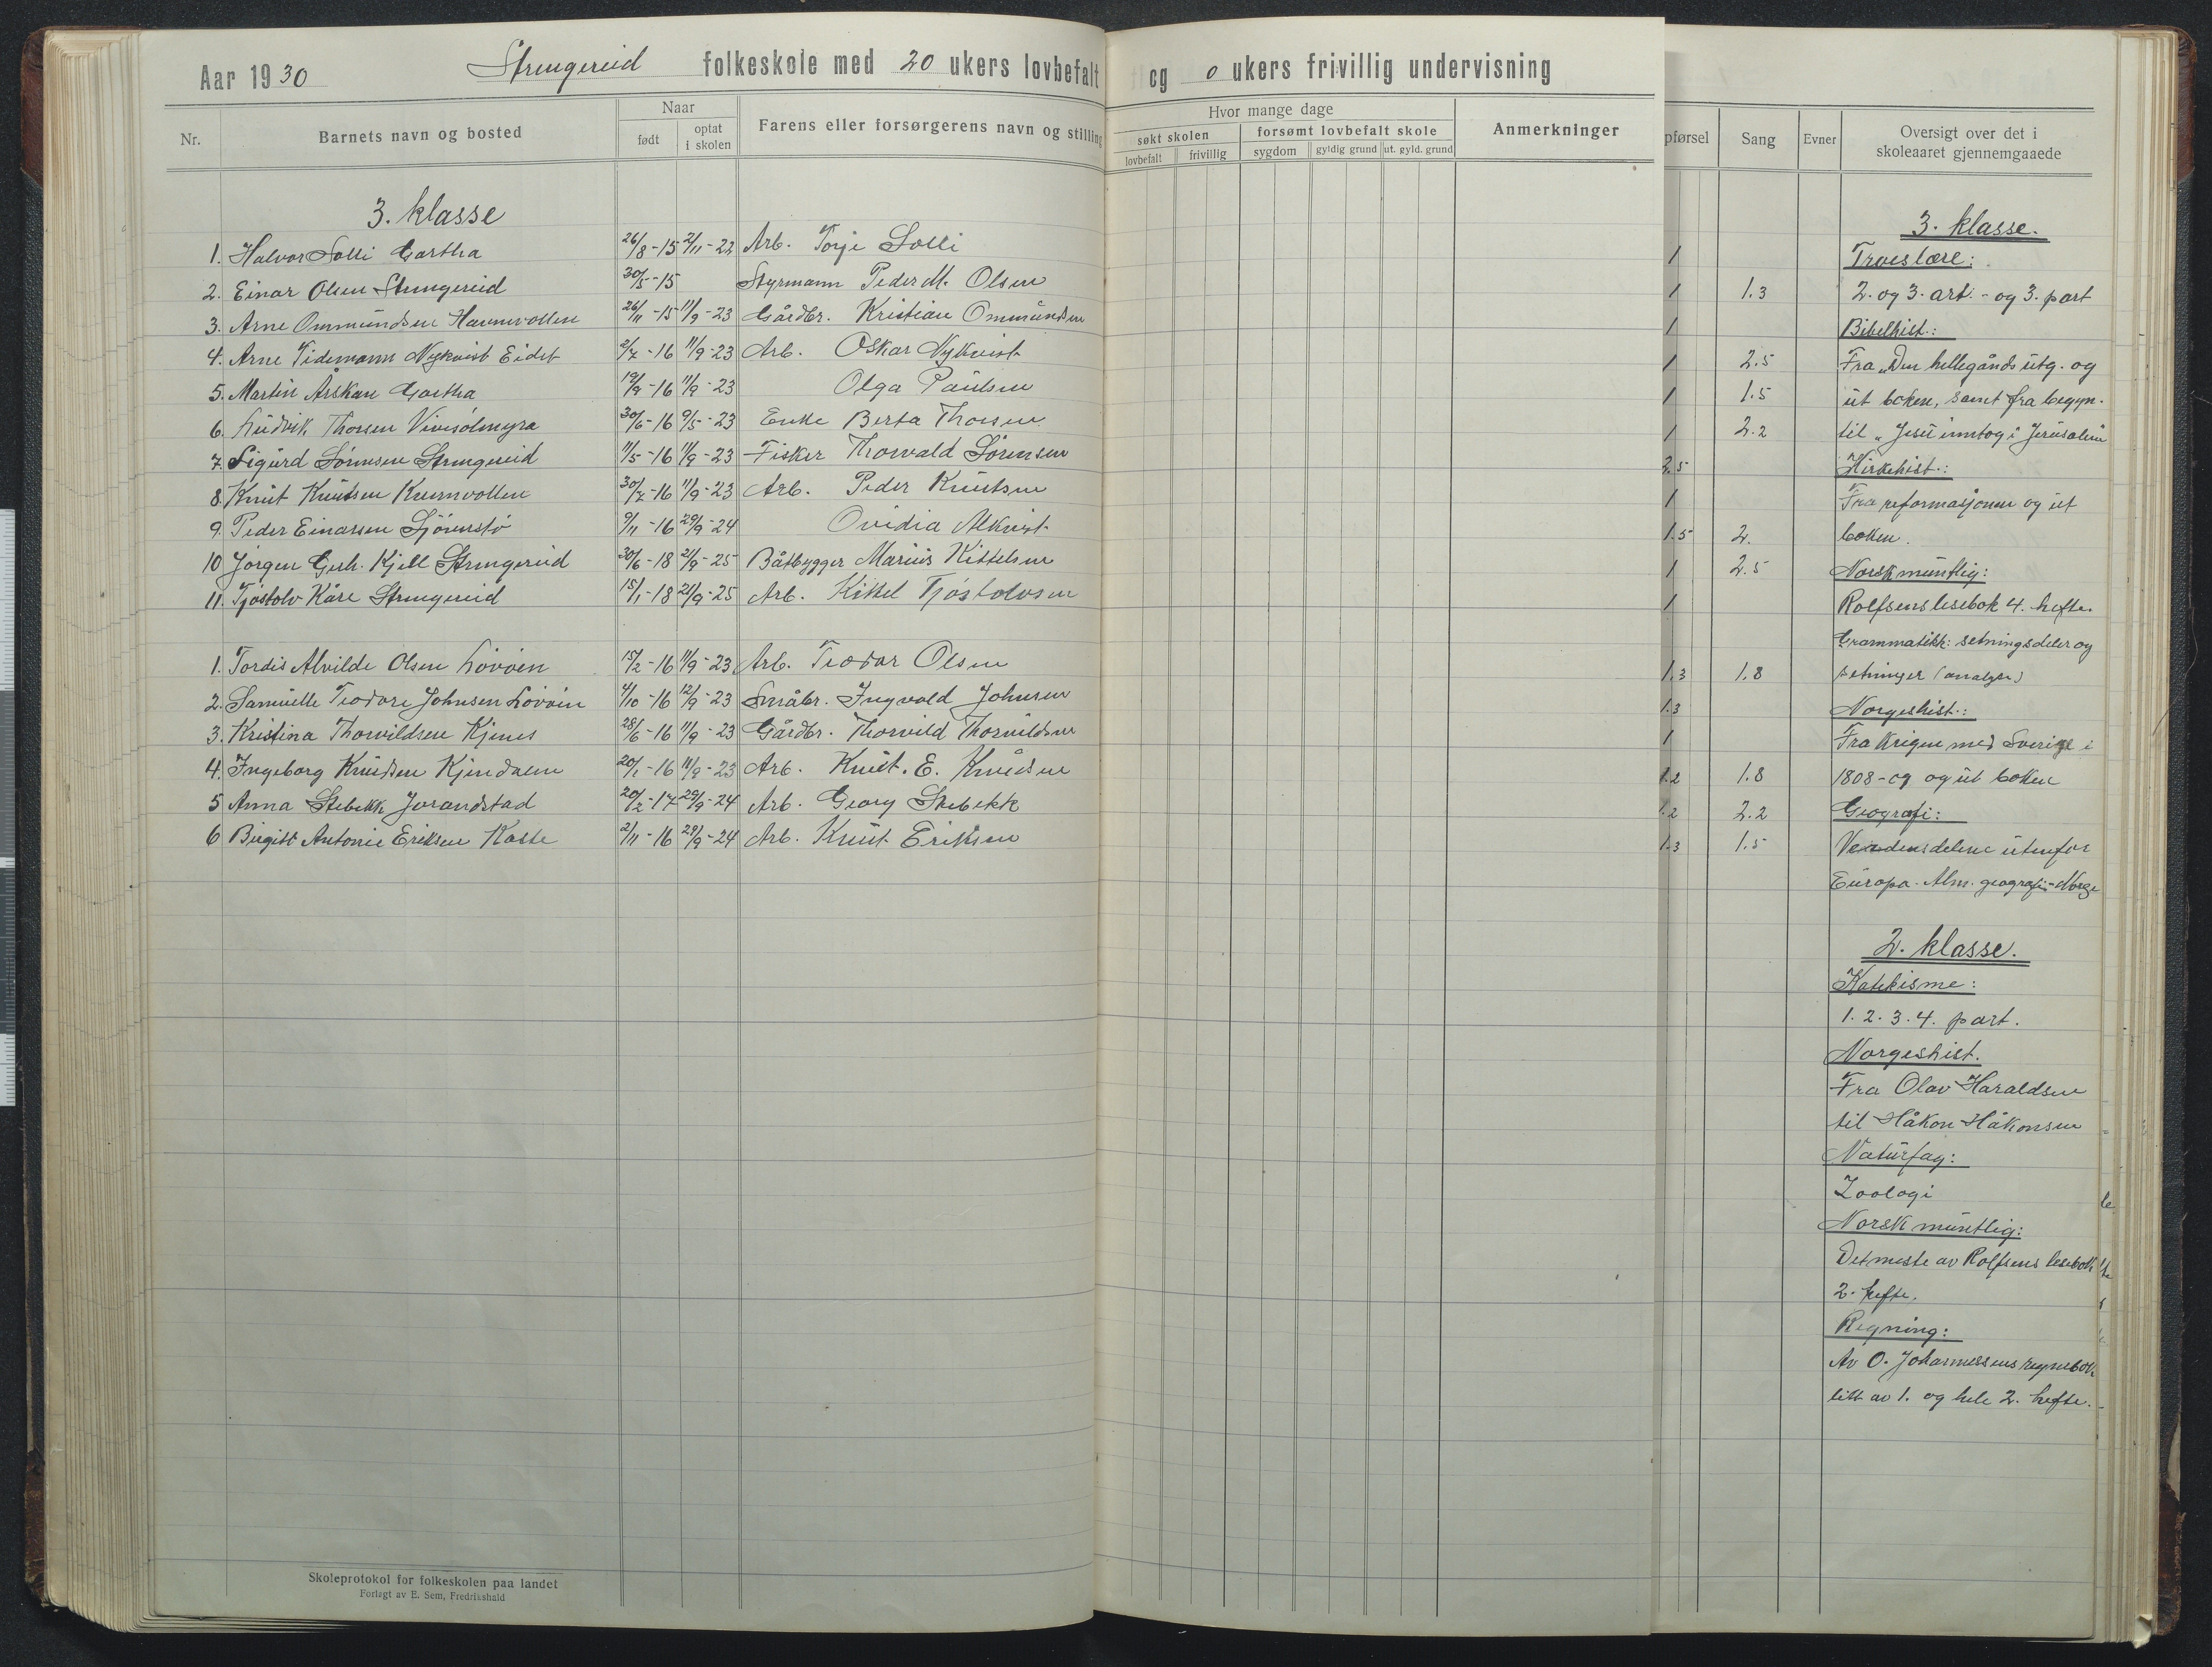 Aar 1930 Strengereid folkeskole med 20 ukers lovbefalt og 0 ukers frivillig undervisning
Nr. Barnets navn og bosted Naar født optat i skolen Farens eller forsørgerens navn og stilling
Hvor mange dage
søkt skolen forsømt lovbefalt skole Anmerkninger
lovbefalt frivillig sygdom gyldig grund ut. gyld. grund
3. klasse
1. Halvor Solli Gartha 26/8-15 2/11-22 Arb. Torje Solli
2. Einar Olsen Strengereid 30/5-15 Styrmann Peder M. Olsen
3. Arne Ommundsen Havnvollen 26/11-15 11/9-23 Gårdbr. Kristian Ommundsen
4. Arne Tidemann Nykvist Eidet 2/7-16 11/9-23 Arb. Oskar Nykvist
5. Martin Årskau Gartha 19/9-16 11/9-23 Olga Paulsen
6. Ludvik Thorsen Vivesølmyra 30/6-16 9/5-23 Enke Berta Thorsen
7. Sigurd Sørensen Strengereid 11/5-16 11/9-23 Fisker Thorvald Sørensen
8. Knut Knutsen Kvernvollen 30/7-16 11/9-23 Arb. Peder Knutsen
9. Peder Einarsen Sjöverstø 9/11-16 29/9-24 Ovidia Alkvist
10 Jørgen Gerh. Kjell Strengereid 30/6-18 21/9-25 Båtbygger Marius Kittelsen
11. Tjøstolv Kåre Strengereid 15/1-18 21/9-25 Arb. Kittel Tjøstolvsen
1. Tordis Alvilde Olsen Lövöen 15/2-16 11/9-23 Arb. Teodor Olsen
2. Samuelle Teodore Johnsen Lövöen 4/10-16 12/9-23 Småbr. Ingvald Johnsen
3. Kristina Thorvildsen Kjenes 28/6-16 11/9-23 Gårdbr. Thorvild Thorvildsen
4. Ingeborg Knudsen Kjendalen 20/1-16 11/9-23 Arb. Knut. E. Knudsen
5 Anna Stebekk Jorandstad 20/2-17 29/9-24 Arb. Georg Stebekk
6 Birgit Antonie Eriksen Kaste 2/11-16 29/9-24 Arb. Knut Eriksen
Skoleprotokol for folkeskolen paa landet
Forlagt av E. Sem, Fredrikshald
pførsel Sang Evner Oversigt over det i skoleaaret gjennemgaaede
1
1 1.3
1
1 2.5
1 1.5
1 2.2
2.5
1
1.5 2.
1 2.5
1
1.3 1.8
1.3
1
1.2 1.8
1.2 2.2
1.3 1.5
3. klasse.
Troeslære:
2. og 3. art. - og 3. part
Bibelhist.:
Fra „Den hellegånds utg. og
ut boken, samt fra begyn.
til „Jesu inntog i Jerusalem
Kirkehist.:
Fra reformasjonen og ut
boken.
Norsk muntlig:
Rolfsens lesebok 4. hefte.
Grammatikk: setningsdeler og
setninger (analyse)
Norgeshist.:
Fra krigen med Sverige i
1808-09 og ut boken
Geografi:
Verdensdelene utenfor
Europa. Alm. geografi - Norge
2. klasse.
Katekisme:
1. 2. 3. 4. part.
Norgeshist.
Fra Olav Haraldsen
til Håkon Håkonsen
Naturfag:
Zoologi
Norsk muntlig:
Det meste av Rolfsens lesebok
2. hefte.
Regning:
Av O. Johannessens regnebok
litt av 1. og hele 2. hefte.